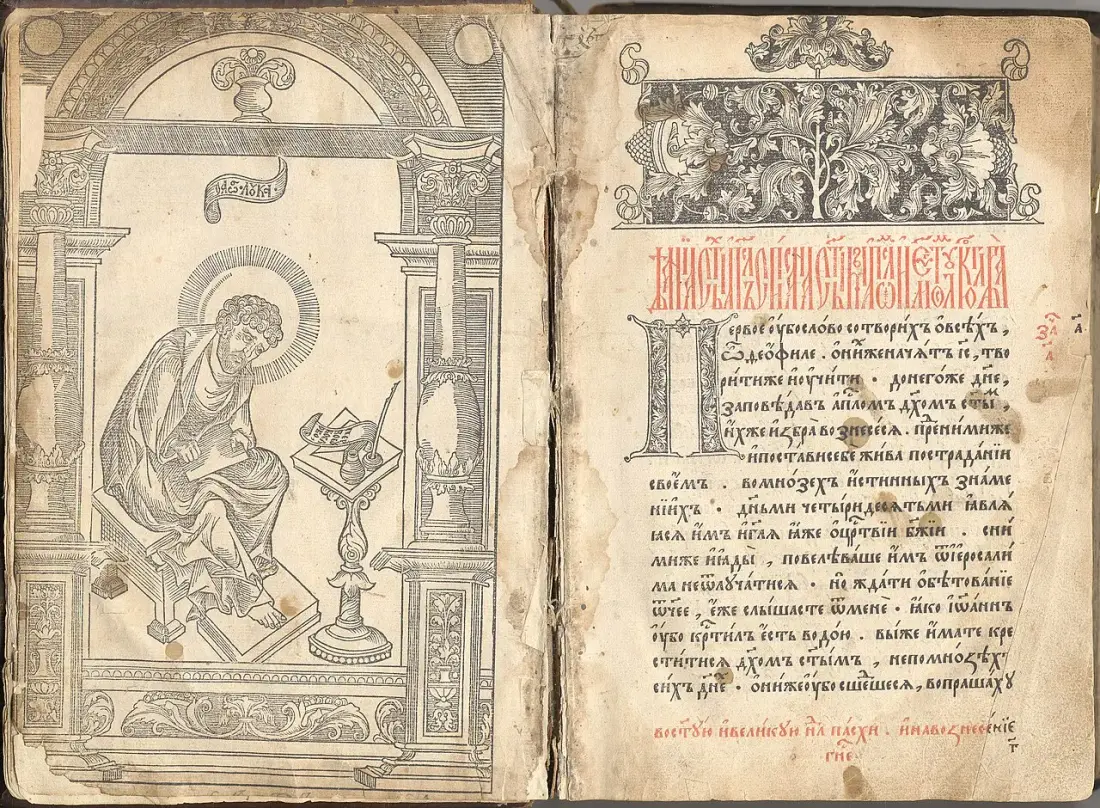 лꙋка
Первое ᲂу҆бо слово сотворихъ ѡ҆ всѣхъ ,
ѽ деѻфиле . ѻ҆ ниже начѧтъ і҃с , тво
рити же и҆ ᲂу҆чити · до него же дн҃е ,
заповѣдавъ а҆пⷭ҇лом дх҃омъ ст҃ыⷨ ,
и҆х же и҆збра вознесесѧ . пред ними же
и҆ постави себе жива по страданїи
своемъ . во мнозехъ и҆стинныхъ знаме
нїихъ · дн҃ьми четыридесѧтьми ꙗ҆влѧ
ꙗсѧ и҆мъ и҆ гл҃ѧ ꙗ҆же ѡ҆ црⷭ҇твїи бж҃їи . с ни
ми же и҆ ꙗ҆ды , повелѣваше и҆мъ ѿ і҆еросали
ма не ѿлучатисѧ · но ждати ѡ҆бѣтованїе
ѿч҃ее , е҆же слышасте ѿ мене · ꙗ҆ко і҆ѡ҆аннъ
ᲂу҆бо крⷭ҇тил є҆сть водою . вы же и҆мате кре
ститисѧ дх҃омъ ст҃ымъ , не по мнозѣхъ
сихъ дн҃е · ѻ҆ни же ᲂу҆бо сшеⷣшесѧ , вопрашахꙋ
во ст҃ꙋю и҆ великꙋю нⷧ҇ѧ пасхи . и҆ на вознесенїе
гнⷭ҇е